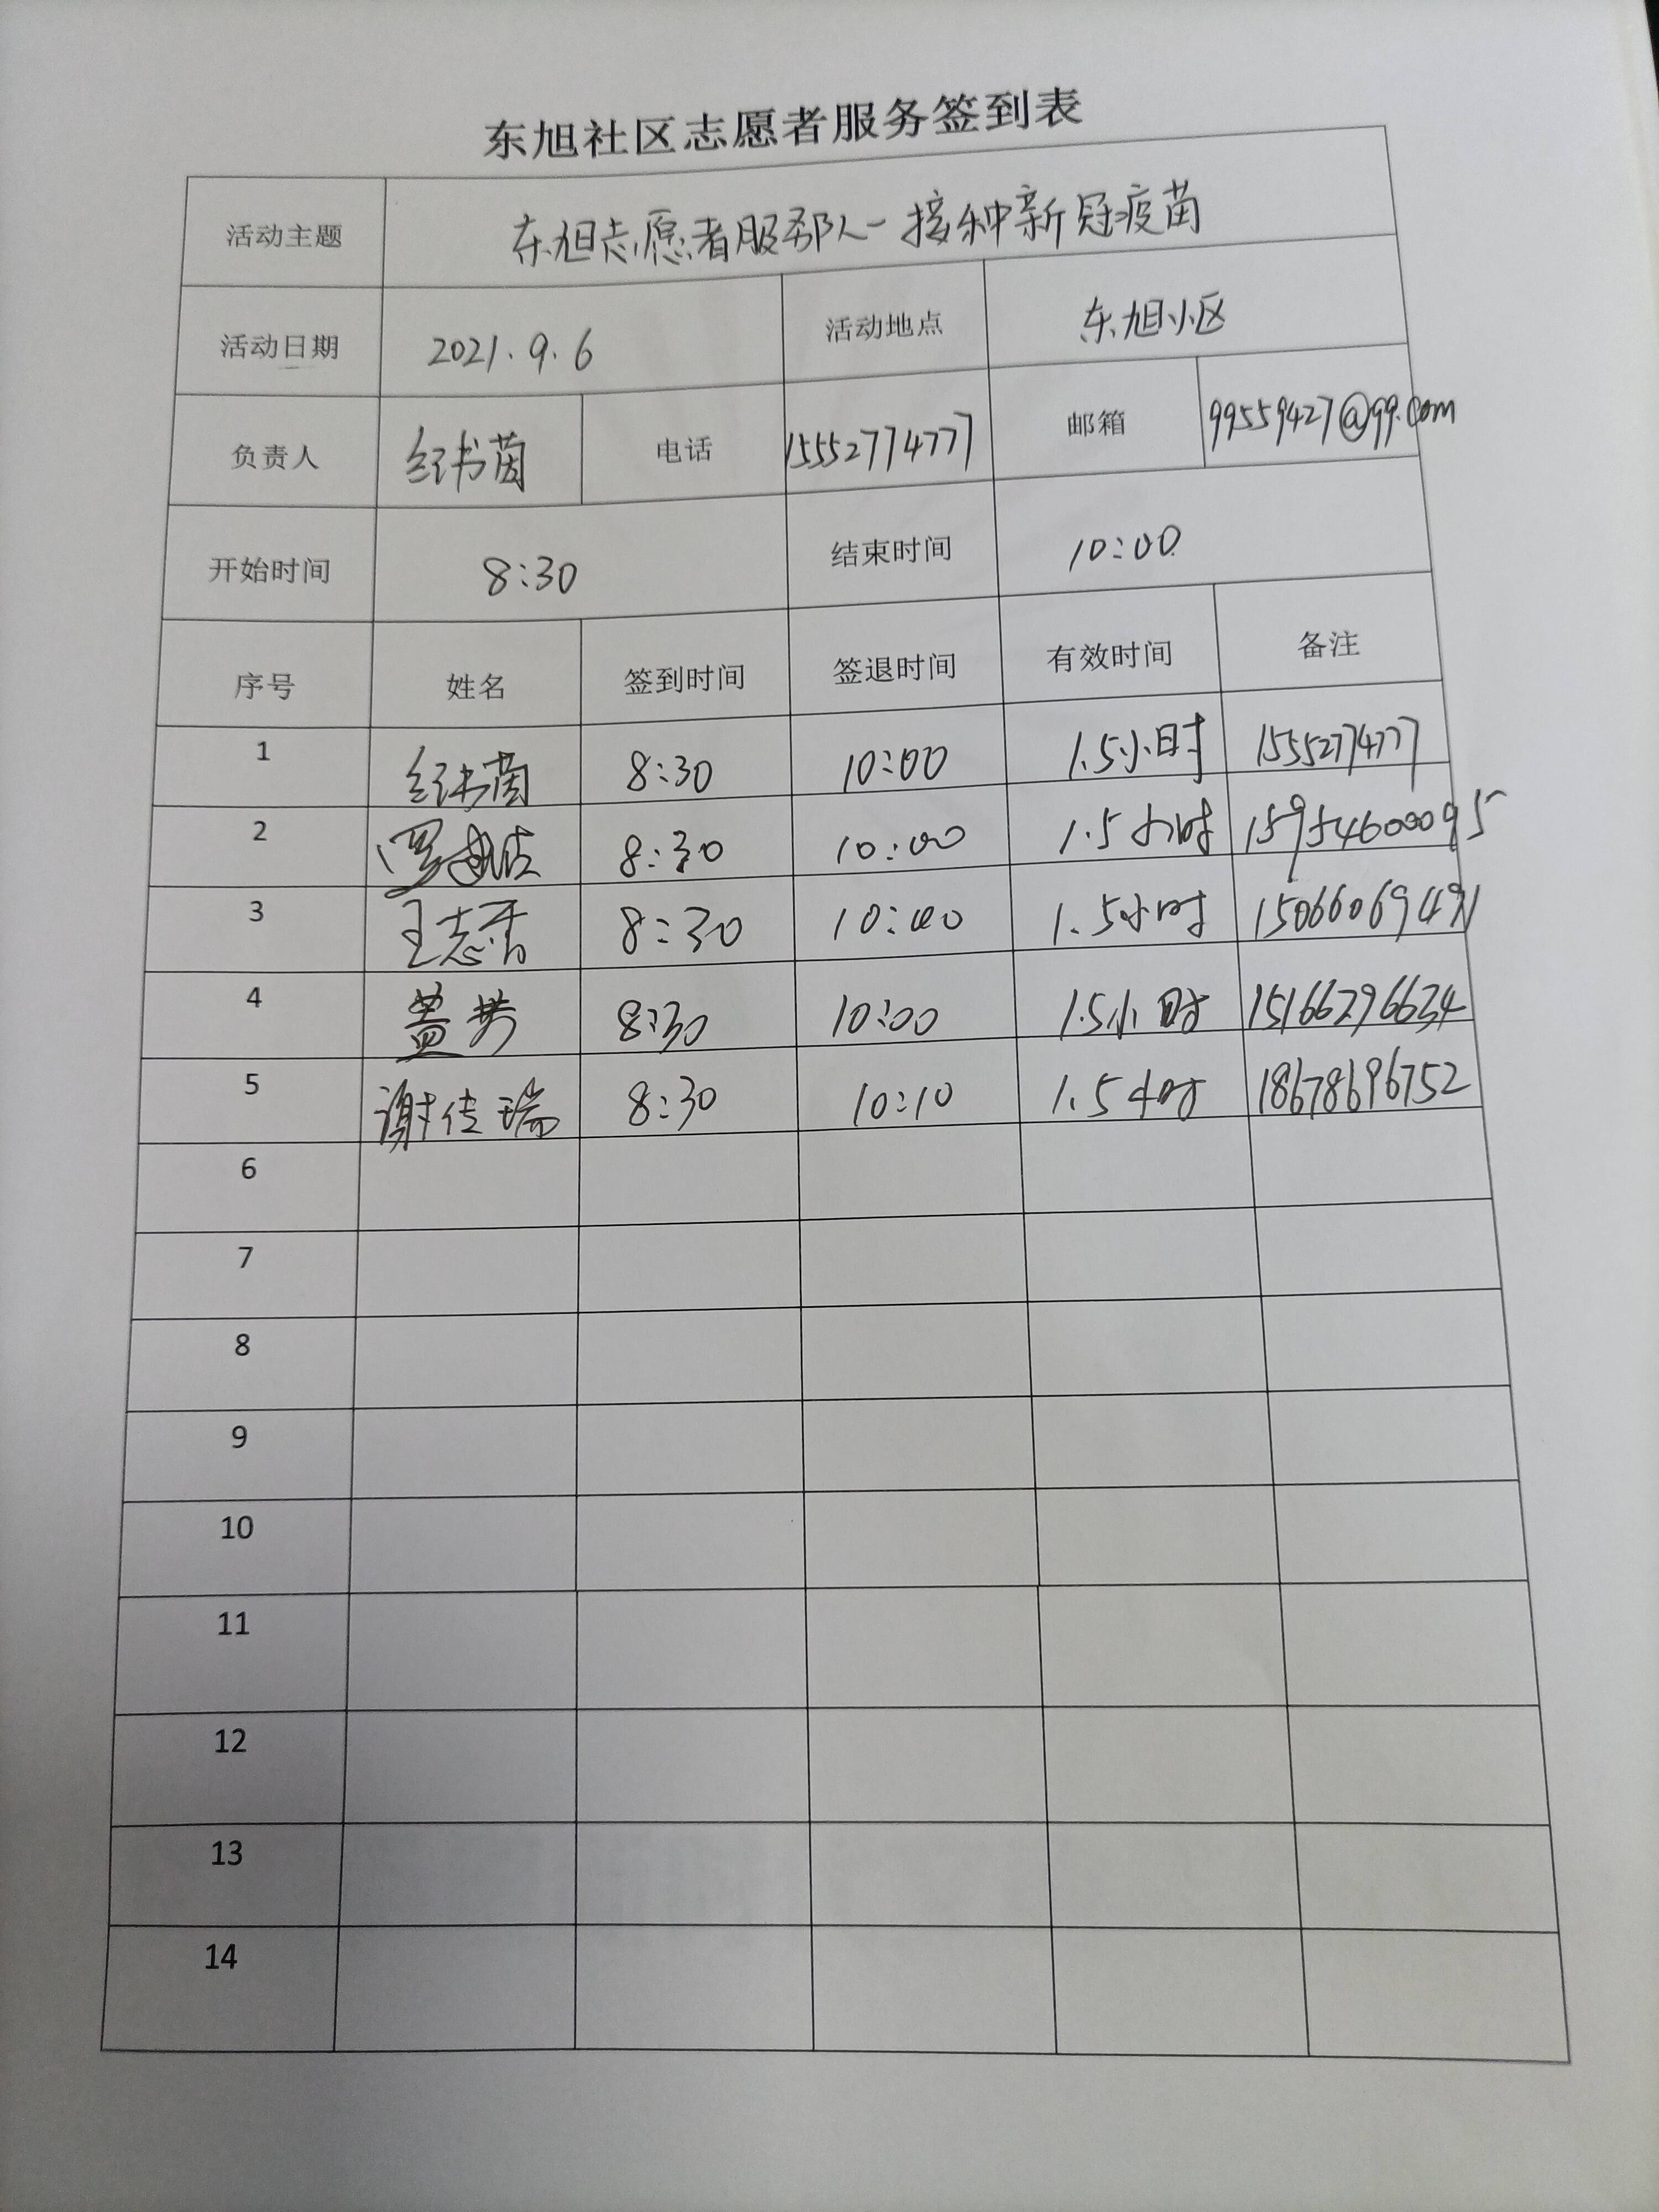 东旭社区志愿者服务签到表
活动主题 东旭志愿者服务队一接种新冠疫苗
活动日期 2021.9.6 活动地点 东旭小区
负责人 纪书茵 电话 15552774777 邮箱 99559427@qq.com
开始时间 8:30 结束时间 10:00
序号 姓名 签到时间 签退时间 有效时间 备注
1 纪书茵 8:30 10:00 1.5小时 15552774777
2 罗 8:30 10:00 1.5小时 15954600095
3 王志香 8:30 10:00 1.5小时 15066069491
4 盖 8:30 10:00 1.5小时 15166296634
5 谢佳瑞 8:30 10:10 1.5小时 18678696752
6
7
8
9
10
11
12
13
14